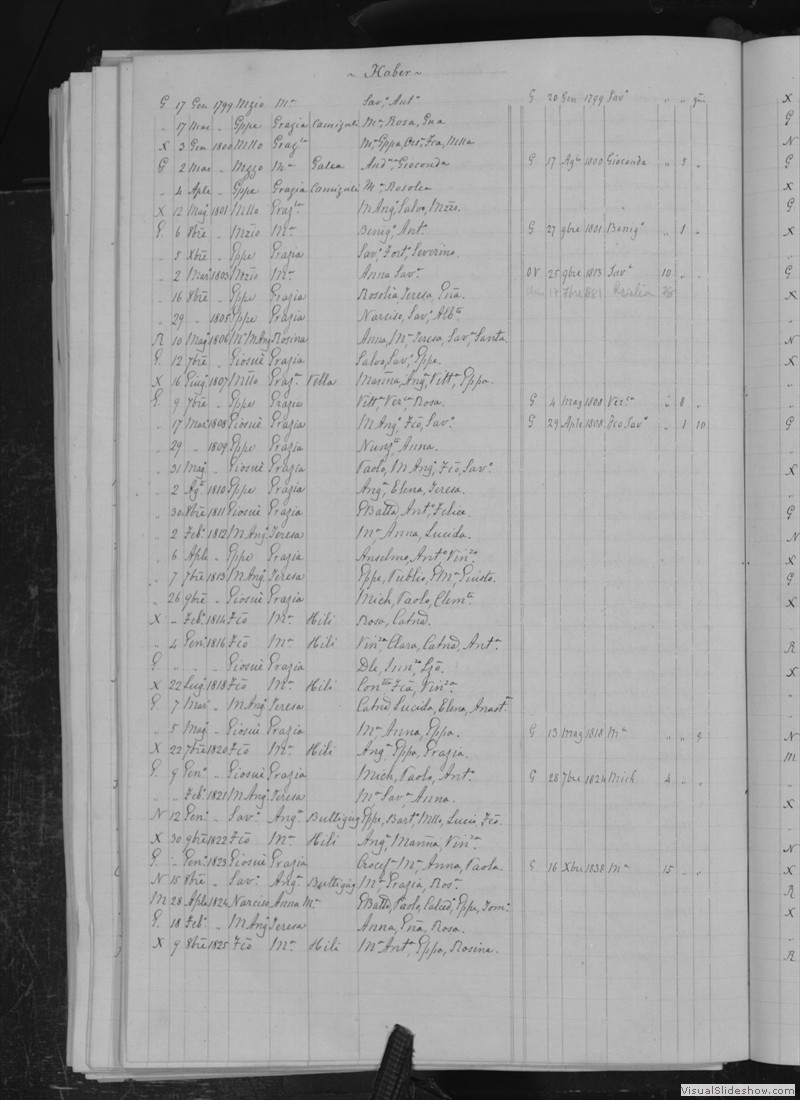 ~ Haber ~
G 17 Gen 1799 Mzio Mᵃ Savᵃ, Antᵃ G 20 Gen 1799 Savᵃ „ „
„ 17 Mar „ Gppe Grazia Camiguli Mᵃ, Rosa, Gna
X 3 Gen 1800 Mllo Grazᵃ Mᵃ, Gppa, Fra, Nilla
G 2 Mar „ Mzzo Mᵃ Galea Andᵃ, Gioconda G 17 Agᵗᵒ 1800 Gioconda „ 5 „
„ 4 Aple „ Gppe Grazia Camiguli Mᵃ, Rosolea
X 12 Magᵒ 1801 Mllo Grazᵃ M Angᵃ, Salvᵒ, Mzio.
G. 6 8bre „ Mzio Mᵃ Benigᵃ, Antᵃ G 27 9bre 1801 Benigᵃ „ 1 „
„ 5 Xbre „ Gppe Grazia Savᵃ, Fortᵃ, Severino.
„ 2 Marᵒ 1803 Mzio Mᵃ Anna Savᵃ OV 25 9bre 1813 Savᵃ 10 „ „
„ 16 8bre „ Gppe Grazia Rosolia, Teresa, Gna. 17 7bre 1881 Rosolia 78
„ 29 „ 1805 Gppe Grazia Narciso, Savᵃ, Albᵗᵃ
R 10 Magᵒ 1806 Mᵃ M Angᵒ Rosina Anna, Mᵃ Teresa, Savᵃ, Santa
G. 12 7bre „ Giosuè Grazia Salvᵒ, Savᵃ, Gppe.
X 16 Giugᵒ 1807 Mllo Grazᵃ Vella Marina, Angᵃ, Vittᵃ, Gppa.
G. 9 7bre „ Gppe Grazia Vittᵃ, Verᶜᵃ, Rosa. G 4 Mag 1808 Verᶜᵃ „ 8 „
„ 17 Marᵒ 1808 Giosuè Grazia M Angᵒ, Fco, Savᵃ. G 29 Aple 1808 Fco Savᵃ „ 1 10
„ 29 „ 1809 Gppe Grazia Nunzᵗᵃ, Anna.
„ 31 Magᵒ „ Giosuè Grazia Paolo, M Angᵒ, Fco, Savᵃ.
„ 2 Agᵗᵒ 1810 Gppe Grazia Angᵃ, Elena, Teresa.
„ 30 8bre 1811 Giosuè Grazia GBatta, Antᵒ, Felice.
„ 2 Febᵒ 1812 M Angᵒ Teresa Mᵃ, Anna, Lucida.
„ 6 Aple „ Gppe Grazia Anselmo, Antᵒ, Vinᶻᵒ
„ 7 7bre 1813 M Angᵒ Teresa Gppe, Publio, GMᵃ, Giusto.
„ 26 9bre „ Giosuè Grazia Mich, Paolo, Clemᵗᵉ.
X „ Febᵒ 1814 Fco Mᵃ Hili Rosa, Catnd.
„ 4 Genᵒ 1816 Fco Mᵃ Hili Vinᶻᵃ, Clara, Catnd, Antᵃ
G. „ „ „ Giosuè Grazia
X 22 Lugᵒ 1818 Fco Mᵃ Hili Conᵗᵗᵃ, Fca, Vinᶻᵃ.
G. 7 Marᵒ „ M Angᵒ Teresa Catnd, Lucida, Elena, Anastᵃ
„ 5 Magᵒ „ Giosuè Grazia Mᵃ, Anna, Gppa. G 13 Mag 1818 Mᵃ „ „ 9
X 22 7bre 1820 Fco Mᵃ Hili Angᵃ, Gppa, Grazia.
G. 9 Genᵒ „ Giosuè Grazia Mich, Paolo, Antᵒ. G 28 7bre 1824 Mich 4 „ „
„ „ Febᵒ 1821 M Angᵒ Teresa Mᵃ, Savᵃ, Anna.
N 12 Genᵒ „ Savᵒ Angᵃ Buttigieg Gppe, Bartᵒ, Mllo, Lucio, Fco.
X 30 9bre 1822 Fco Mᵃ Hili Angᵃ, Marina, Vinᶻᵃ.
G. „ Genᵒ 1823 Giosuè Grazia Crocefᵃ, Mᵃ, Anna, Paola. G 16 Xbre 1838 Mᵃ 15 „ „
N 15 8bre „ Savᵒ Angᵃ Buttigieg Mᵃ, Grazia, Rosᵃ.
M 28 Aple 1824 Narciso Anna Mᵃ GBatta, Paolo, Calcedᵒ, Gppe, Domᵒ.
G. 18 Febᵒ „ M Angᵒ Teresa Anna, Gna, Rosa.
X 9 8bre 1825 Fco Mᵃ Hili Mᵃ Antᵃ, Gppa, Rosina.
VisualSlideshow.com